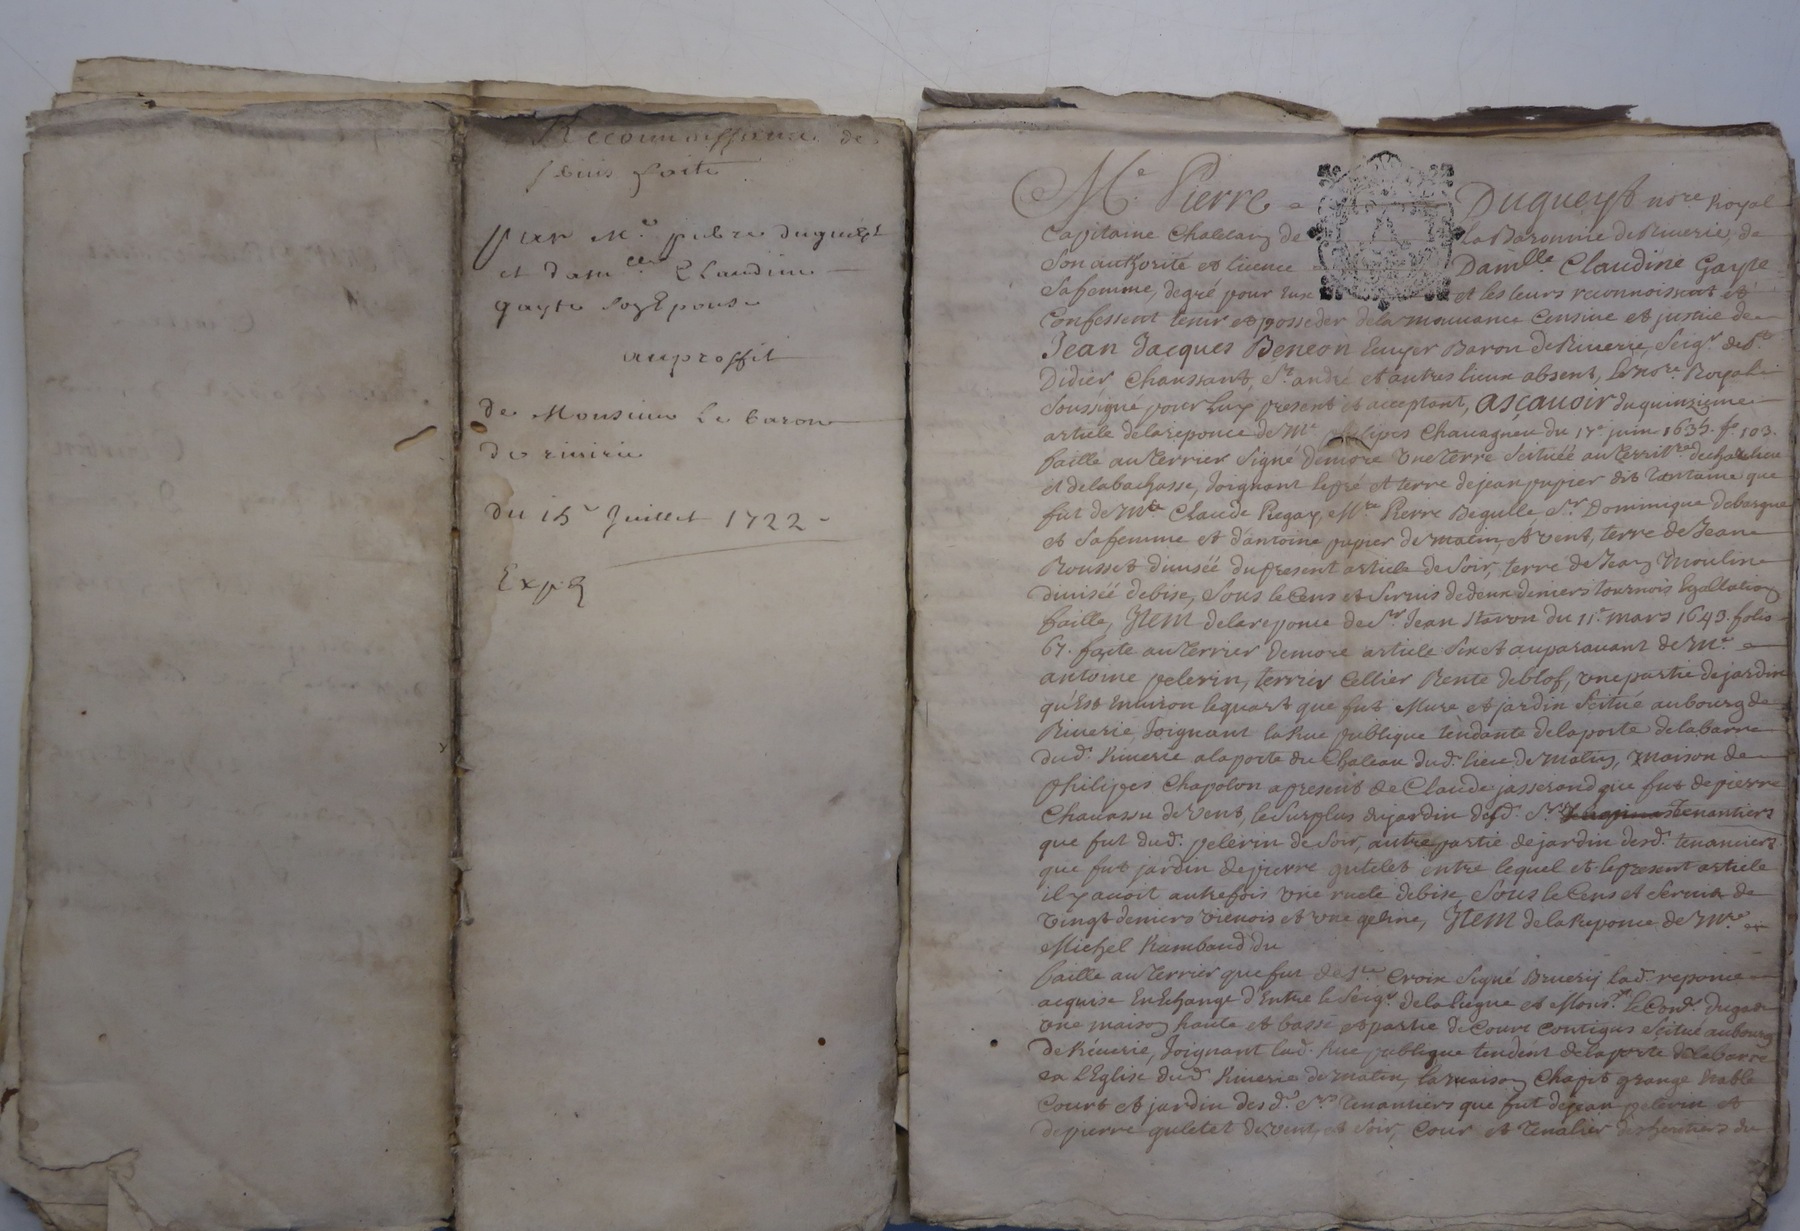 Reconnoissance de
fiuis faite
par Me. pierre duqueyst
et dam.lle Claudine
gayte son Epouse
au proffit
de Monsieur le baron
de riuirie
du 15e Juillet 1722
Exp.
Me. Pierre Duqueyst no.re Royal
Capitaine Chatelain de la Baronnie de Riuerie, de
Son authorité et licence Dam.lle Claudine Gayte
Sa femme, de gré pour Eux et les leurs reconnoissent et
Confessent tenir et posseder de la mouuance Censiue et justice de
Jean Jacques Beneon Ecuyer Baron de Riuerie, Seig.r de St.
Didier, Chaussant, St. andré et autres lieux absent, le no.re Royal
Soussigné pour Luy present et acceptant, ascauoir du quinzieme
article de la reponce de Me. philipes Chauagneu du 17e juin 1635. fo. 103.
faille au Terrier Signé Demore Vne terre Scituée au territ.re de
et de la bachasse, Joignant le pré et terre de jean pupier dit tantaine que
fut de Mre Claude Regay, Mre Pierre Begulle Sr. Dominique debargue
et Sa femme et d'antoine pupier de matin, et Vent, terre de Jean
Rousset diuisée du present article de Soir, terre de Jean Mouline
diuisée de bise, Sous le Cens et Seruis de deux deniers tournois Egallation
faille, Item de la reponce de Sr. Jean Staron du 11e mars 1643. folio
67. faite au Terrier Demore article Six et auparauant de Me.
antoine pelerin, terrier Cellier Rente de blof, Vne partie de jardin
qu'Est Enuiron le quart que fut Mure et jardin Scitué au bourg de
Riuerie Joignant la Rue publique tendante de la porte de la barre
dud. Riuerie a la porte du Chateau dud. lieu de matin, Maison de
philipes Chapolon a present de Claude jasserand que fut de pierre
Chauassu de Vent, le Surplus du jardin desd. Srs tenantiers
que fut dud. pelerin de Soir, autre partie de jardin desd. tenanciers
que fut jardin de pierre guletet entre lequel et le present article
il y auoit autrefois Vne ruele de bise, Sous le Cens et Seruis de
Vingt deniers Vienois et Vne geline, Item de la Reponce de Mre
Michel Rambaud du
faille au Terrier que fut de Ste Croix Signé Bruerij lad. reponce
acquise En Echange d'Entre le Seigr. de la liegue et Monsr. le
Vne maison haute et basse et partie de Cour Contigus Scitué au bourg
de Riuerie, Joignant lad. Rue publique tendent de la porte de la barre
a l'Eglise dud. Riuerie de matin, la maison, Chapit grange Etable
Court et jardin des d. Srs tenantiers que fut de jean pelerin et
de pierre guletet de vent, et Soir, Cour et des heritiers du